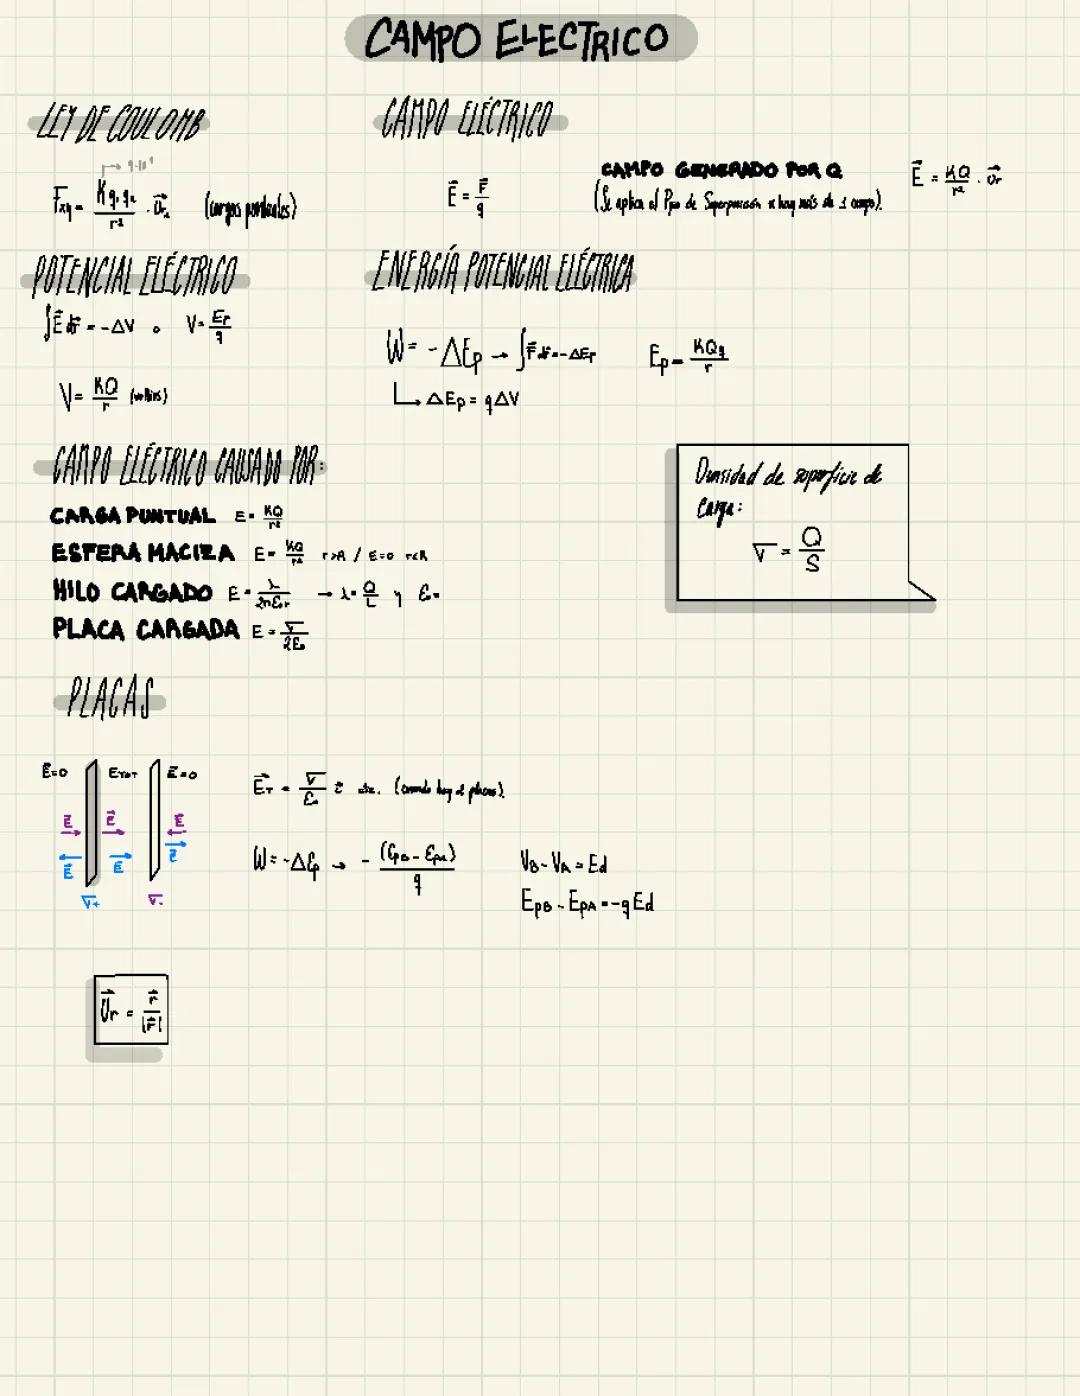 CAMPO ELECTRICO
LEY DE COULOMB
→ 9·10⁹
Fxy = K q₁·q₂ / r² · U⃗r₂ (cargas puntuales)
CAMPO ELÉCTRICO
E⃗ = F⃗ / q
CAMPO GENERADO POR Q
(Se aplica el Ppio de Superposición si hay más de 1 campo).
E⃗ = KQ / r² · U⃗r
POTENCIAL ELÉCTRICO
∫E⃗ dr⃗ = -ΔV o V = Ep / q
V = KQ / r (voltios)
ENERGÍA POTENCIAL ELÉCTRICA
W = -ΔEp → ∫F⃗ dr⃗ = -ΔEp
Ep = KQq / r
↳ ΔEp = qΔV
CAMPO ELÉCTRICO CAUSADO POR:
CARGA PUNTUAL E = KQ / r²
ESFERA MACIZA E = KQ / r² r>R / E=0 r<R
HILO CARGADO E = λ / 2πε₀r → λ = Q / L y ε₀ =
PLACA CARGADA E = σ / 2ε₀
Densidad de superficie de
carga:
σ = Q / S
PLACAS
E⃗=0 ETOT E⃗=0
E⃗ E⃗ E⃗
E⃗ E⃗ E⃗
σ+ σ-
E⃗T = σ / ε₀ (cuando hay 2 placas).
W = -ΔEp → - (EpB - EpA) / q
VB - VA = Ed
EpB - EpA = -qEd
U⃗r = r⃗ / |r⃗|